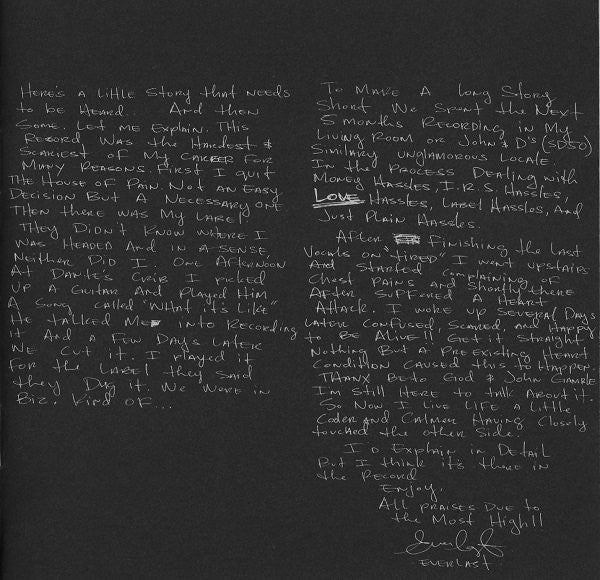 Here's a little story that needs
to be heard.. And then
some. Let me explain. This
record was the hardest &
scariest of my career for
many reasons. First I quit
the House of Pain. Not an easy
decision but a necessary one
Then there was my label
They didn't know where I
was headed and in a sense,
neither did I. One afternoon
at Dante's crib I picked
up a guitar and played him
a song called "What it's like"
He talked me into recording
it and a few days later
we cut it. I played it
for the label they said
they dug it. We were in
Biz, kind of...
To make a long story
short we spent the next
5 months recording in my
living room or John & D's (SD50)
similary unglamorous locale.
In the process dealing with
money hassles, I.R.S. hassles,
LOVE hassles, label hassles, and
just plain hassles.
After finishing the last
vocals on "tired" I went upstairs
and started complaining of
chest pains and shortly there
after suffered a heart
attack. I woke up several days
later confused, scared, and happy
to be alive!! Get it straight
nothing but a preexisting heart
condition caused this to happen.
Thanx be to God & John Gamble
I'm still here to talk about it.
So now I live life a little
colder and calmer having closely
touched the other side.
I'd explain in detail
but I think it's there in
the record
Enjoy.
All praises due to
the Most High!!
Everlast
EVERLAST